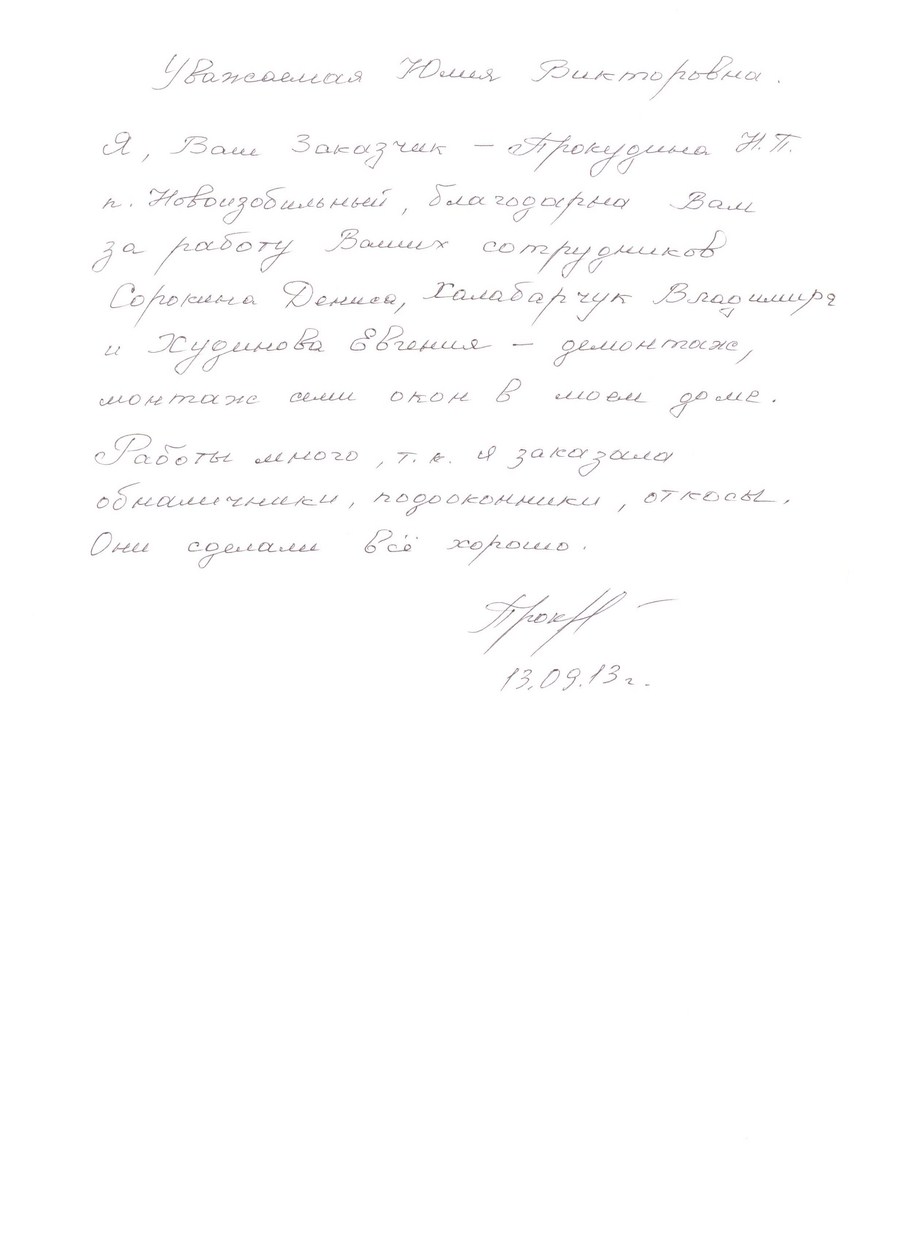 Уважаемая Юлия Викторовна.
Я, Ваш Заказчик – Прокудина Н.П.
п. Новоизобильный, благодарна Вам
за работу Ваших сотрудников
Сорокина Дениса, Халабарчук Владимира
и Худинова Евгения – демонтаж,
монтаж семи окон в моем доме.
Работы много, т.к. я заказала
обналичники, подоконники, откосы.
Они сделали всё хорошо.
Прок
13.09.13г.